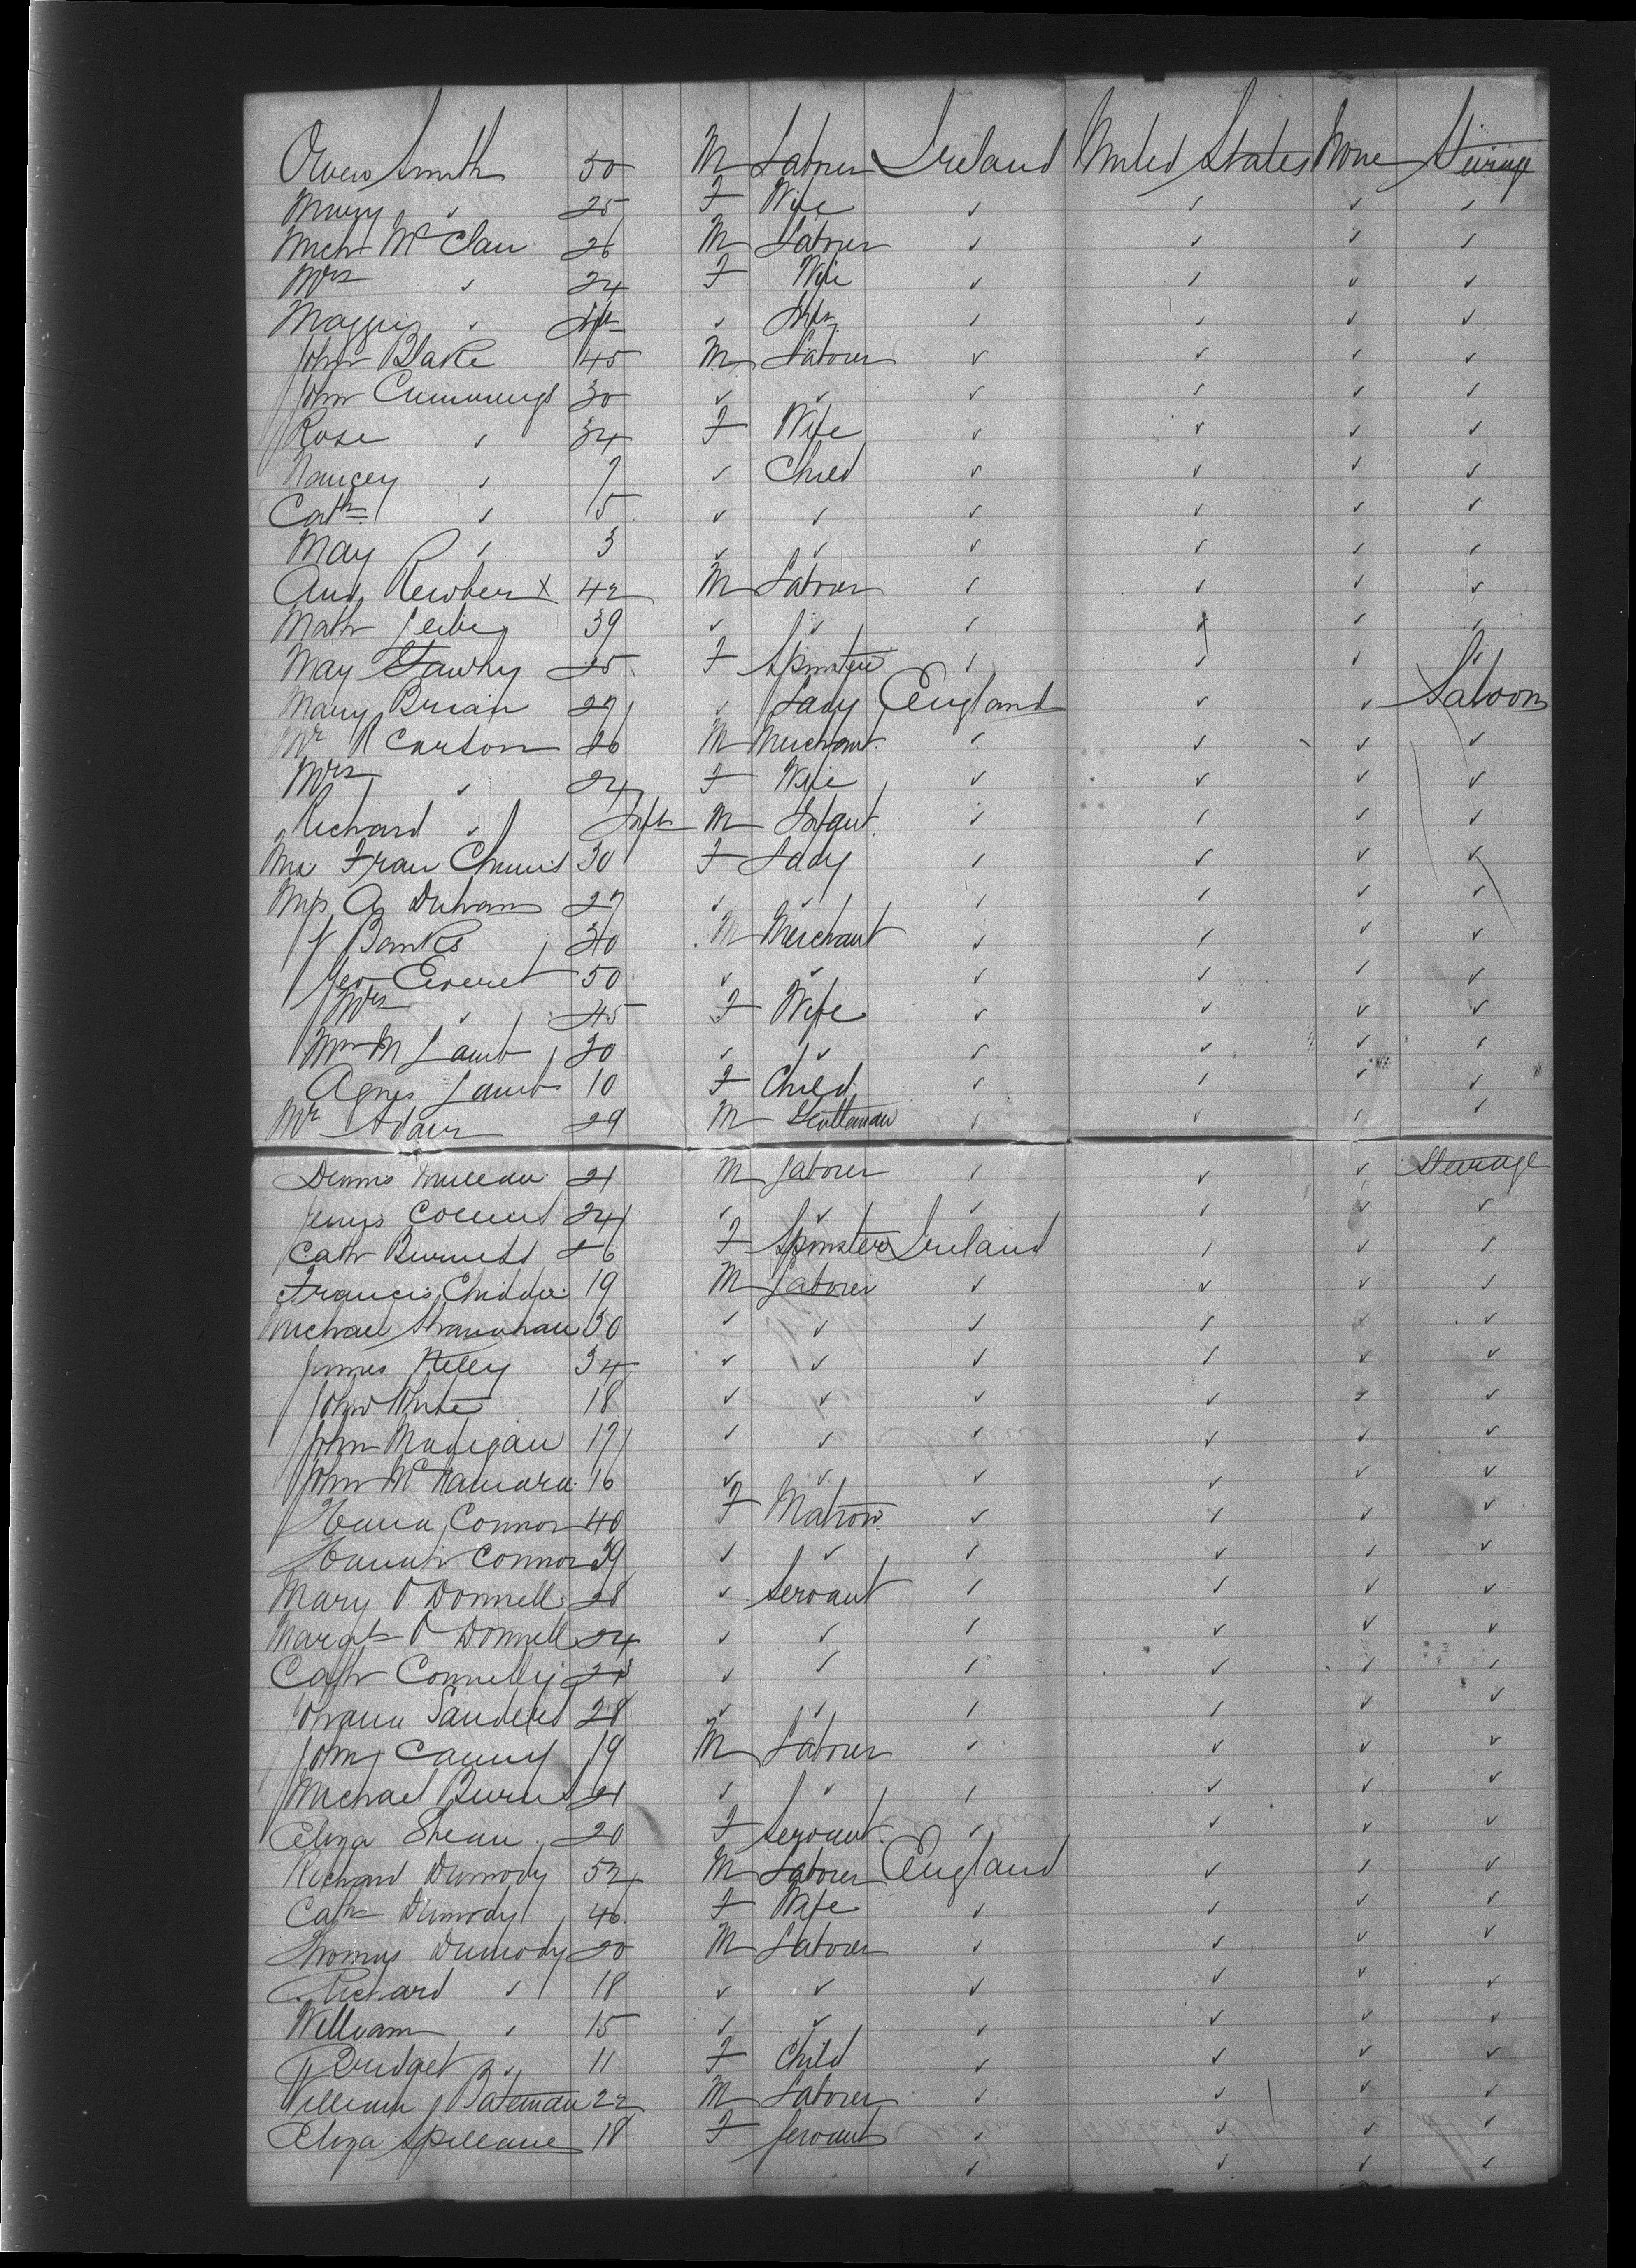 Owen Smith 50 M Laborer Ireland United States None Steerage
Mary ✓ 25 F Wife ✓ ✓ ✓ ✓
Mich McClair 26 M Laborer ✓ ✓ ✓ ✓
Mrs ✓ 24 F Wife ✓ ✓ ✓ ✓
Maggie ✓ Inft ✓ ✓ ✓ ✓ ✓
John Blake 45 M Laborer ✓ ✓ ✓ ✓
John Cummings 30 ✓ ✓ ✓ ✓ ✓ ✓
Rose ✓ 34 F Wife ✓ ✓ ✓ ✓
Nancey ✓ 7 ✓ Child ✓ ✓ ✓ ✓
Cath ✓ 5 ✓ ✓ ✓ ✓ ✓ ✓
May ✓ 3 ✓ ✓ ✓ ✓ ✓ ✓
And x 42 M Laborer ✓ ✓ ✓ ✓
Math 39 ✓ ✓ ✓ ✓ ✓ ✓
May 25 F Spinster ✓ ✓ ✓ ✓
Mary Brian 27 ✓ Lady England ✓ ✓ Saloon
Mr R Carson 26 M Merchant ✓ ✓ ✓ ✓
Mrs ✓ 24 F Wife ✓ ✓ ✓ ✓
Richard ✓ Inft M Infant ✓ ✓ ✓ ✓
Fran 30 F Lady ✓ ✓ ✓ ✓
A Duham 27 ✓ ✓ ✓ ✓ ✓ ✓
Banks 30 M Merchant ✓ ✓ ✓ ✓
Geo Everet 50 ✓ ✓ ✓ ✓ ✓ ✓
Mrs ✓ 45 F Wife ✓ ✓ ✓ ✓
M Lamb 30 ✓ ✓ ✓ ✓ ✓ ✓
Agnes Lamb 10 F Child ✓ ✓ ✓ ✓
Mr Adair 29 M Gentleman ✓ ✓ ✓ ✓
Dennis 21 M Laborer ✓ ✓ ✓ Steerage
Collins 24 ✓ ✓ ✓ ✓ ✓ ✓
Cath Burness 26 F Spinster Ireland ✓ ✓ ✓
Francis 19 M Laborer ✓ ✓ ✓ ✓
Michael Shanahan 30 ✓ ✓ ✓ ✓ ✓ ✓
James Kelly 34 ✓ ✓ ✓ ✓ ✓ ✓
John White 18 ✓ ✓ ✓ ✓ ✓ ✓
John Madigan 17 ✓ ✓ ✓ ✓ ✓ ✓
John McNamara 16 ✓ ✓ ✓ ✓ ✓ ✓
Hana Connor 40 F Matron ✓ ✓ ✓ ✓
Hanah Connor 39 ✓ ✓ ✓ ✓ ✓ ✓
Mary O Donnell 28 ✓ Servant ✓ ✓ ✓ ✓
Margt O Donnell 24 ✓ ✓ ✓ ✓ ✓ ✓
Cath Connelly 23 ✓ ✓ ✓ ✓ ✓ ✓
Johana Sanders 28 ✓ ✓ ✓ ✓ ✓ ✓
John Canny 19 M Laborer ✓ ✓ ✓ ✓
Michael Burns 21 ✓ ✓ ✓ ✓ ✓ ✓
Eliza Shean 20 F Servant ✓ ✓ ✓ ✓
Richard Dumody 52 M Laborer England ✓ ✓ ✓
Cath Dumody 46 F Wife ✓ ✓ ✓ ✓
Thomas Dumody 20 M Laborer ✓ ✓ ✓ ✓
Richard ✓ 18 ✓ ✓ ✓ ✓ ✓ ✓
William ✓ 15 ✓ ✓ ✓ ✓ ✓ ✓
Bridget ✓ 11 F Child ✓ ✓ ✓ ✓
William J Bateman 22 M Laborer ✓ ✓ ✓ ✓
Eliza Spillane 18 F Servant ✓ ✓ ✓ ✓
✓ ✓ ✓ ✓